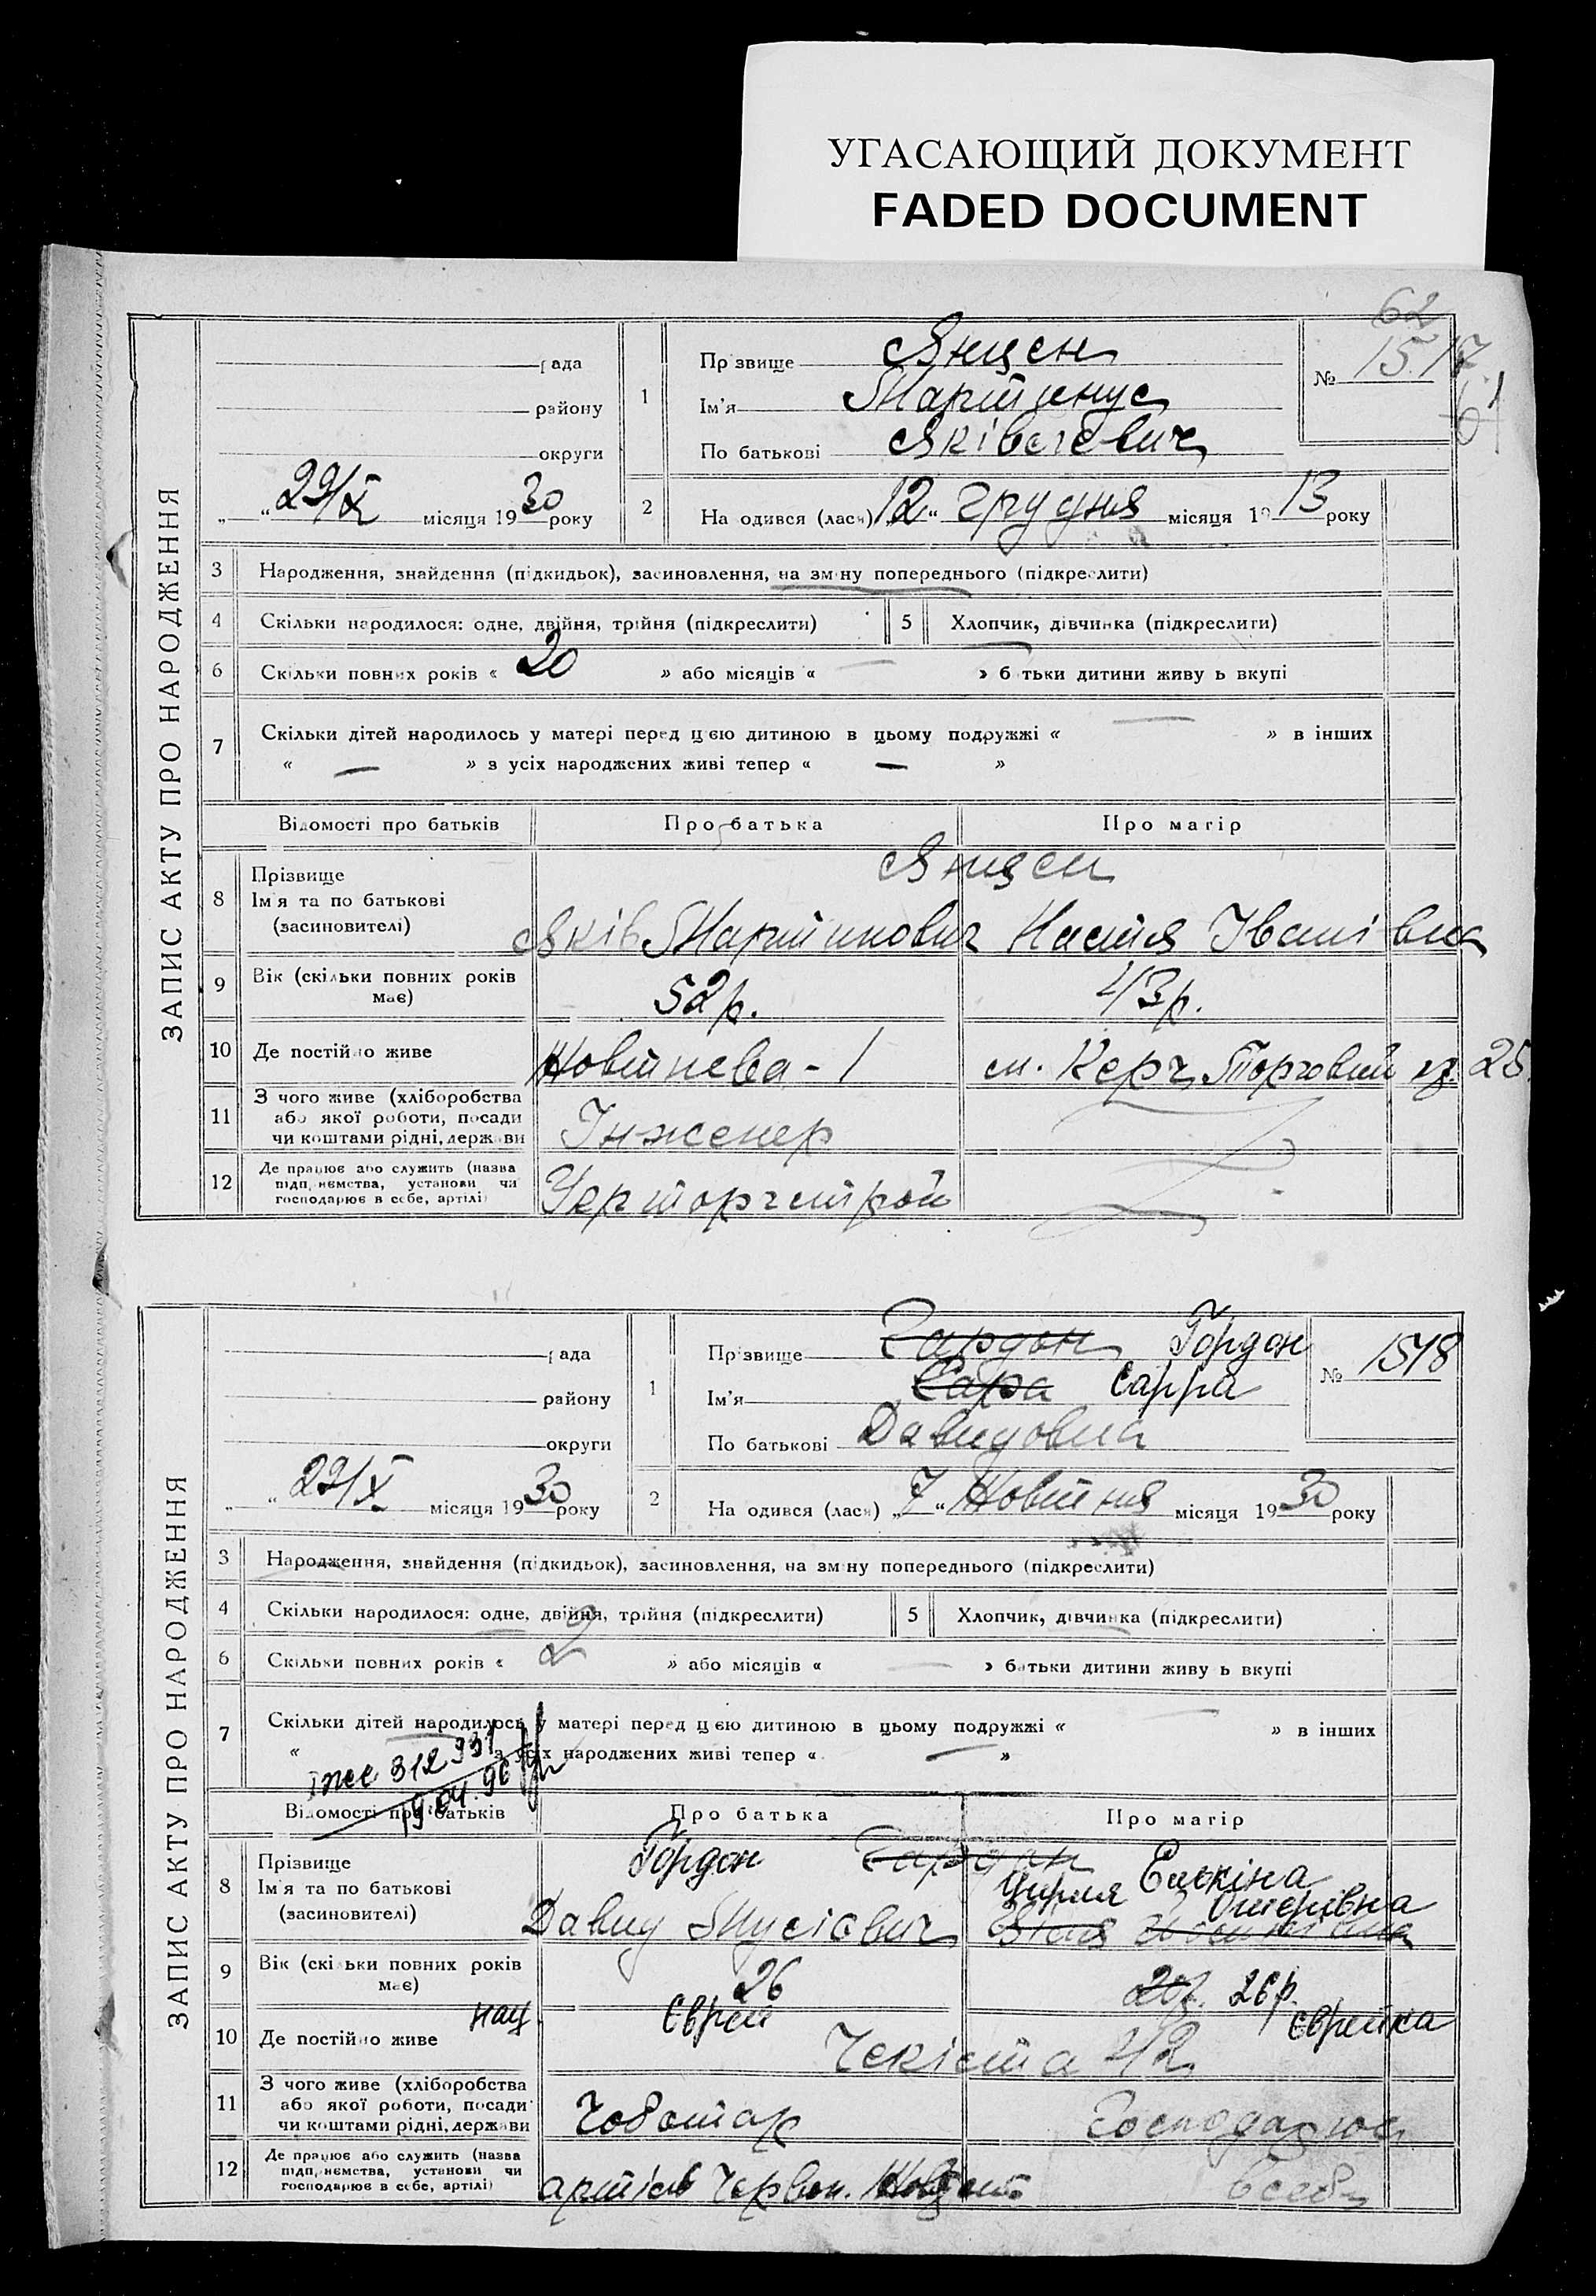 УГАСАЮЩИЙ ДОКУМЕНТ
FADED DOCUMENT
62
61
ЗАПИС АКТУ ПРО НАРОДЖЕННЯ
рада
району
округи
„ “ 29/X місяця 1930 року
1 Прізвище Янцен
Ім'я Мартинус
По батькові Яківлевич
№ 1517
2 На одився (лася) „12“ грудня місяця 1913 року
3 Народження, знайдення (підкидьок), засиновлення, на зміну попереднього (підкреслити)
4 Скільки народилося: одне, двійня, трійня (підкреслити)
5 Хлопчик, дівчинка (підкреслити)
6 Скільки повних років « 20 » або місяців « — » батьки дитини живу ь вкупі
7 Скільки дітей народилось у матері перед цією дитиною в цьому подружжі « — » в інших
« — » з усіх народжених живі тепер « — »
Відомості про батьків Про батька Про матір
8 Прізвище
Ім'я та по батькові
(засиновителі)
Янцен
Яків Мартинович Настя Іванівна
9 Вік (скільки повних років
має)
52 р. 43 р.
10 Де постійно живе Жовтнева - 1 м. Керч, Торговий 25
11 З чого живе (хліборобства
або якої роботи, посади
чи коштами рідні, держави
Інженер
12 Де працює або служить (назва
підприємства, установи чи
господарює в себе, артілі)
Укрторгстрой
ЗАПИС АКТУ ПРО НАРОДЖЕННЯ
рада
району
округи
„ “ 29/X місяця 1930 року
1 Прізвище Гардон Гордон
Ім'я Сара Сарра
По батькові Давидовна
№ 1518
2 На одився (лася) „7“ Жовтня місяця 1930 року
3 Народження, знайдення (підкидьок), засиновлення, на зміну попереднього (підкреслити)
4 Скільки народилося: одне, двійня, трійня (підкреслити)
5 Хлопчик, дівчинка (підкреслити)
6 Скільки повних років « 2 » або місяців « — » батьки дитини живу ь вкупі
7 Скільки дітей народилось у матері перед цією дитиною в цьому подружжі « — » в інших
« » з усіх народжених живі тепер « — »
312 931
19.04.96
Відомості про батьків Про батька Про матір
8 Прізвище
Ім'я та по батькові
(засиновителі)
Гордон Гардон Ескіна
Цирля Ошерівна
Давид Мусієвич
9 Вік (скільки повних років
має)
26 20р. 26р.
нац. Єврей Єврейка
10 Де постійно живе Чекіста 42
11 З чого живе (хліборобства
або якої роботи, посади
чи коштами рідні, держави
Чоботар Господарює
12 Де працює або служить (назва
підприємства, установи чи
господарює в себе, артілі)
артіль Червон. Жовтень в себе